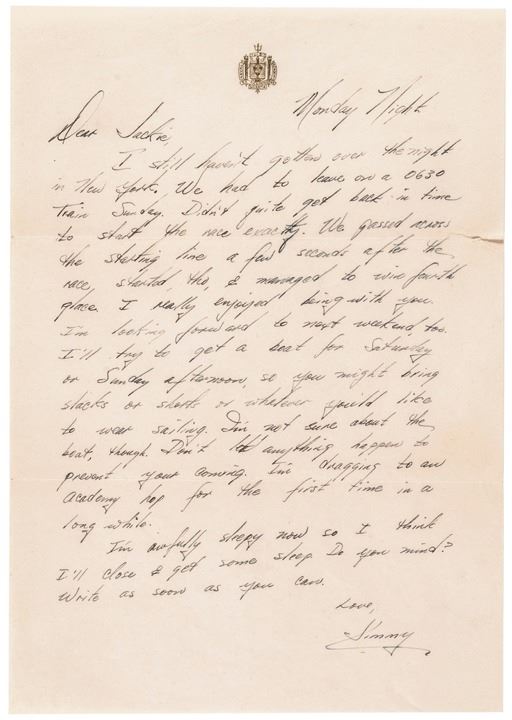 Monday Night
Dear Jackie,
I still haven't gotten over the night
in New York. We had to leave on a 0630
train Sunday. Didn't quite get back in time
to start the race exactly. We passed across
the starting line a few seconds after the
race, started, tho, & managed to win fourth
place. I really enjoyed being with you.
I'm looking forward to next weekend, too.
I'll try to get a boat for Saturday
or Sunday afternoon, so you might bring
slacks or shorts or whatever you'd like
to wear sailing. I'm not sure about the
boat, though. Don't let anything happen to
prevent your coming. I'm dragging to an
academy hop for the first time in a
long while.
I'm awfully sleepy now so I think
I'll close & get some sleep. Do you mind?
Write as soon as you can.
Love,
Jimmy